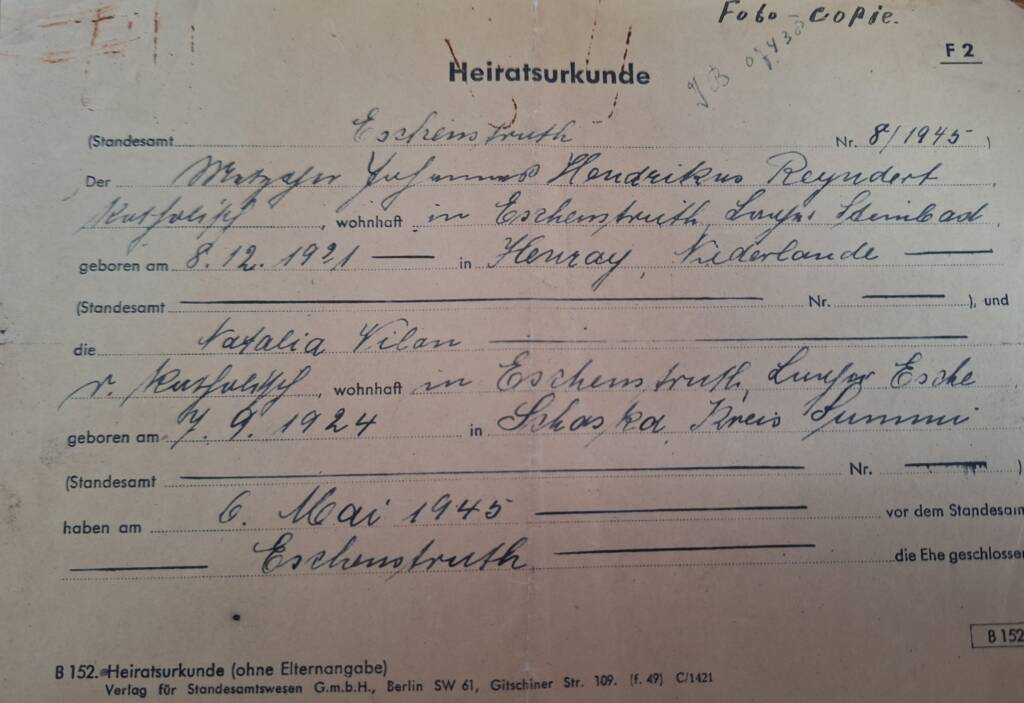 Foto-Copie.
F 2
Heiratsurkunde
(Standesamt Eschenstruth Nr. 8/1945)
Der Metzger Johannes Hendrikus Reyndert
Katholisch, wohnhaft in Eschenstruth, Lager Steinbach
geboren am 8. 12. 1921 — in Henray, Niederlande —
(Standesamt — Nr. — ), und
die Natalia Vilan —
r. Katholisch, wohnhaft in Eschenstruth, Lager Esche
geboren am 7. 9. 1924 in Schaska, Kreis Summi
(Standesamt — Nr. — )
haben am 6. Mai 1945 — vor dem Standesam
— Eschenstruth — die Ehe geschlossen
B 152
B 152. Heiratsurkunde (ohne Elternangabe)
Verlag für Standesamtswesen G.m.b.H., Berlin SW 61, Gitschiner Str. 109. (f. 49) C/1421